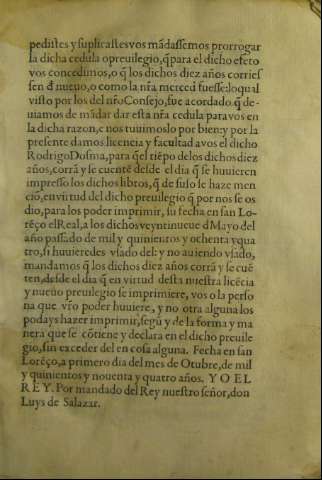 pedistes y suplicastes vos mãdassemos prorrogar
la dicha cedula o preuilegio, q̃ para el dicho efeto
vos concedimos, o q̃ los dichos diez años corries
sen d̃ nueuo, o como la nr̃a merced fuesse: lo qual
visto por los del nr̃o Consejo, fue acordado q̃ de-
uiamos de mãdar dar esta nr̃a cedula para vos en
la dicha razon, e nos tuuimoslo por bien: y por la
presente damos licencia y facultad a vos el dicho
Rodrigo Dosma, para q̃ el tiẽpo de los dichos diez
años, corrã y se cuentẽ desde el dia q̃ se huuieren
impresso los dichos libros, q̃ de suso se haze men
ciõ, en virtud del dicho preuilegio q̃ por nos se os
dio, para los poder imprimir, su fecha en san Lo-
rẽço el Real, a los dichos veynti nueue d Mayo del
año passado de mil y quinientos y ochenta y qua
tro, si huuieredes vsado del: y no auiendo vsado,
mandamos q̃ los dichos diez años corrã y se cuẽ
ten, desde el dia q̃ en virtud desta nuestra licẽcia
y nueuo preuilegio se imprimiere, vos o la perso
na que vr̃o poder huuiere, y no otra alguna los
podays hazer imprimir, segũ y de la forma y ma
nera que se cõtiene y declara en el dicho preuile
gio, sin exceder del en cosa alguna. Fecha en san
Lorẽço, a primero dia del mes de Otubre, de mil
y quinientos y nouenta y quatro años. YO EL
REY. Por mandado del Rey nuestro señor, don
Luys de Salazar.